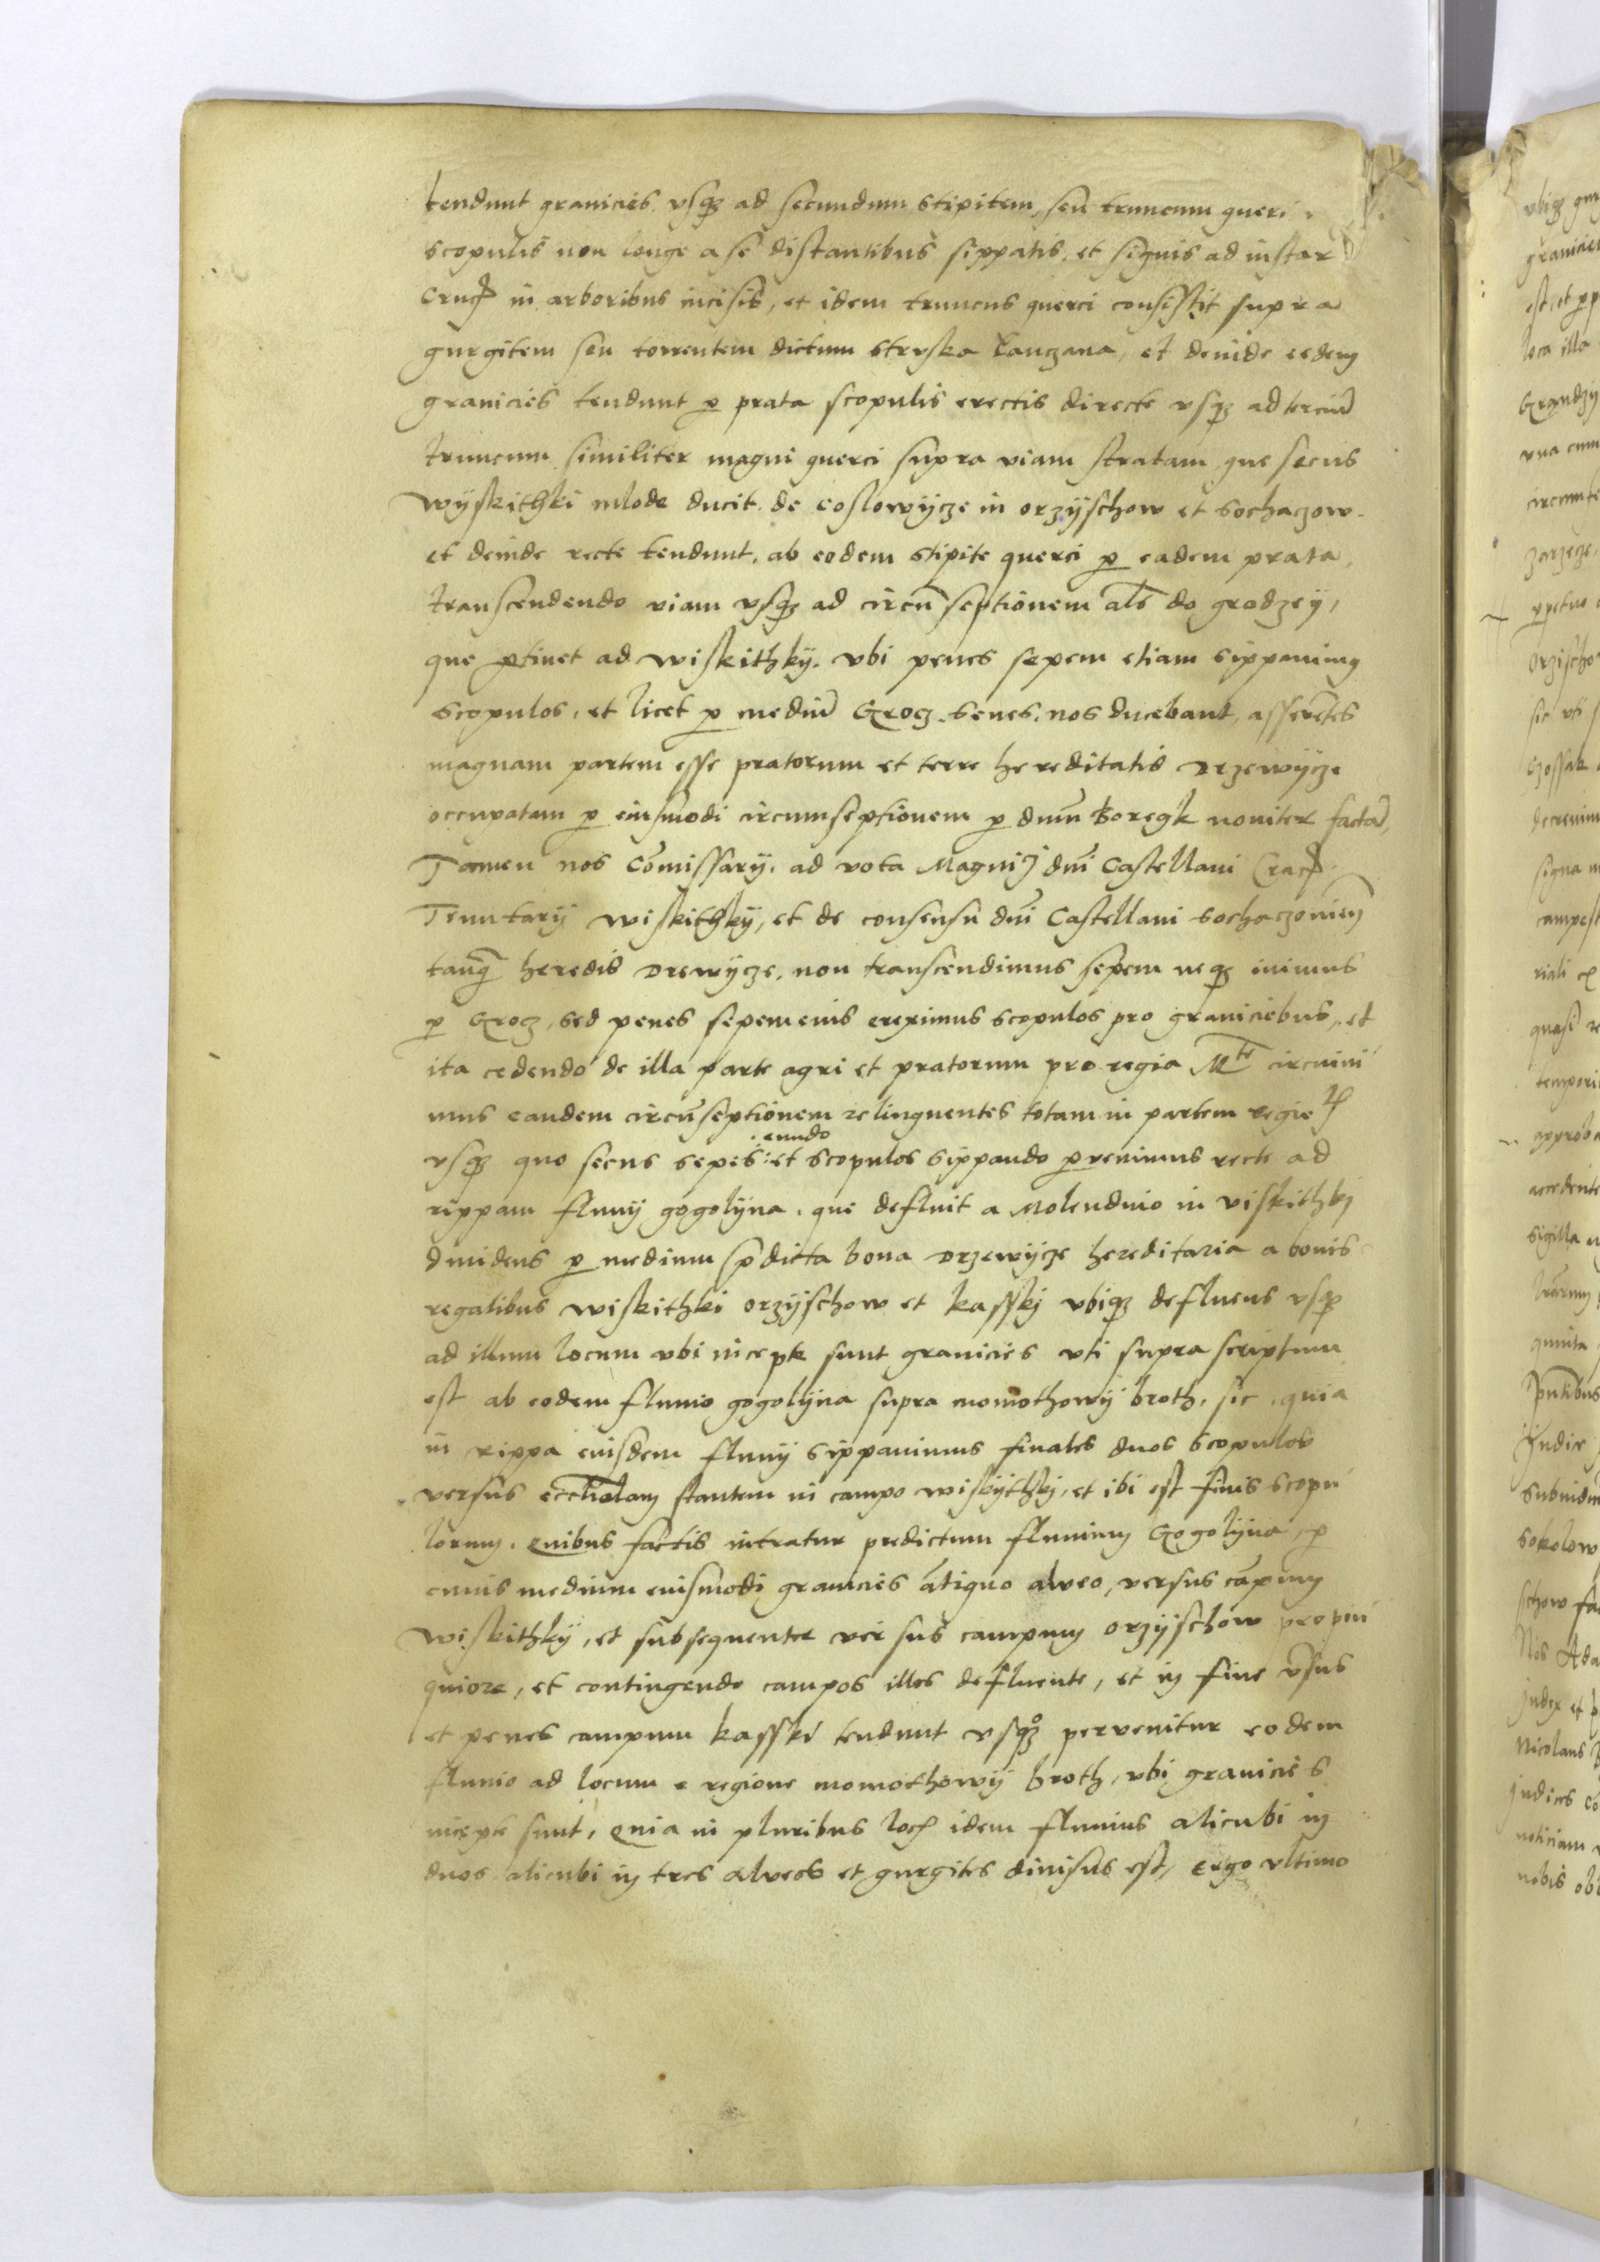 tendunt granicies vsqz ad secundum stipitem, seu truncum querci
scopulis non longe a se distantibus sippatis, et signis ad instar
Cruc in arboribus incisis, et idem truncus querci consistit supra
gurgitem seu torrentem dictum struska Lanczana, et deinde eedem
granicies tendunt p prata scopulis erectis directe vsqz ad terciu
truncum similiter magni querci supra viam stratam que secus
wyskithki mlode ducit de coslowycze in orzyschow et sochaczow.
et deinde recte tendunt, ab eodem stipite querci p eadem prata,
transcendendo viam vsqz ad circu septionem als do grodzey,
que ptinet ad wiskithky. vbi penes sepem etiam sippauimus
scopulos, et licet p mediu Grocz senes. nos ducebant, asserctes
magnam partem esse pratorum et terre hereditatis Drzewycze
occupatam p eiusmodi circumseptionem p dnm Boregk noviter facta,
Tamen nos Comissary, ad vota Magnij dni Castellani Crac
Tenutarij wiskithky, et de consensu dni Castellani sochaczovien
tanq heredis Drewycze, non transcendimus sepem neqz inimus
p Grocz, sed penes sepem eius ereximus scopulos pro graniciebus, et
ita cedendo de illa parte agri et pratorum pro regia Mte circuiui
mus eandem circuseptionem relinquentes totam in partem regie
vsqz quo secus sepes: et eundo scopulos sippando pvenimus recte ad
rippam fluuij gogolyna, qui defluit a Molendino in viskithkj
diuidens p medium spdicta bona Drzewycze hereditaria a bonis
regalibus wiskithki orzyschow et kasskj vbiqz defluens vsqz
ad illum locum vbi incepte sunt granicies vti supra scriptum
est ab eodem fluuio gogolyna supra momothowy broth, sic, quia
in rippa eiusdem fluuij sippauimus finales duos scopulos
versus stantem in campo wiskythkj, et ibi est finis scopu
lorum. Quibus factis intratur predictum fluuium Gogolyna, p
cuius medium eiusmodi granicies atiquo alveo, versus capum
wiskithky, et subsequenter versus campum orzyschow propin
quiore, et contingendo campos illos defluente, et in fine vsus
et penes campum kasski tendunt vsqzo pervenitur eodem
fluuio ad locum e regione momothowy broth, vbi granicies
incepte sunt, Quia in pluribus loc idem fluuius alicubi in
duos alicubi in tres alveos et gurgites diuisus est, Ergo vltimo